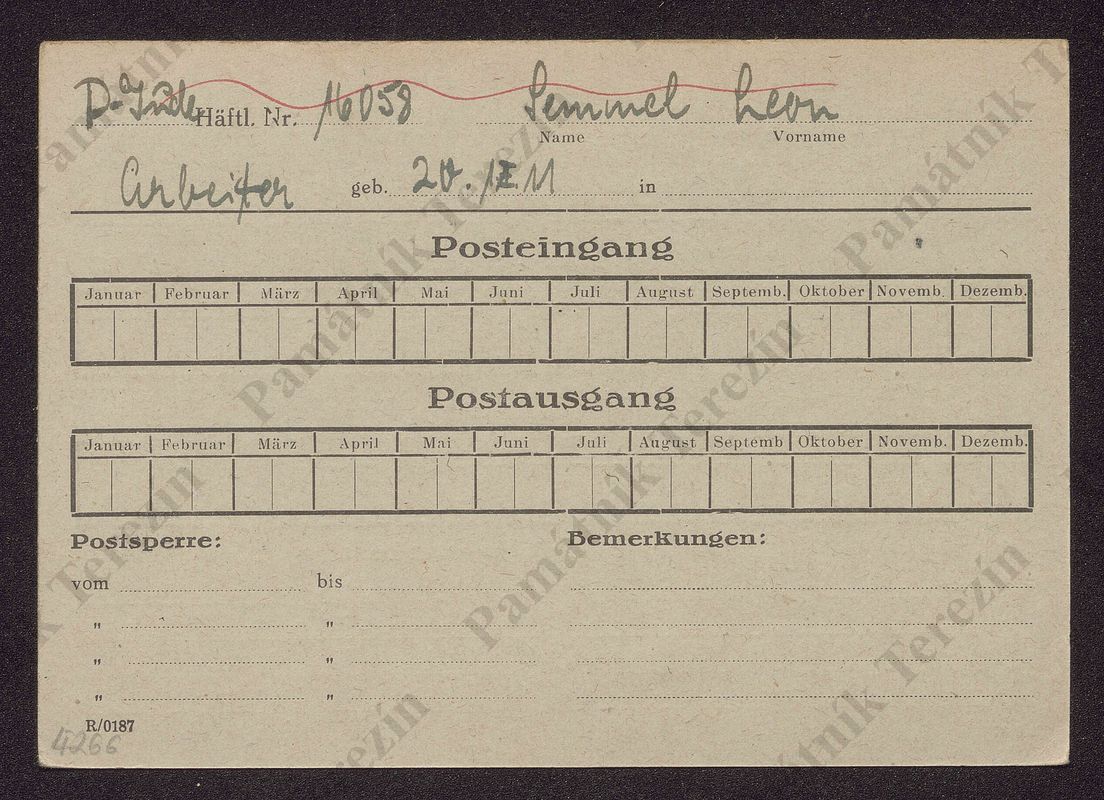 P-Jude Häftl. Nr. 16058 Semmel Leon
Name Vorname
Arbeiter geb. 20. in
Posteingang
Januar Februar März April Mai Juni Juli August Septemb. Oktober Novemb. Dezemb.
Postausgang
Januar Februar März April Mai Juni Juli August Septemb Oktober Novemb. Dezemb.
Postsperre: Bemerkungen:
vom bis
" "
" "
" "
R/0187
4266
Památník Terezín